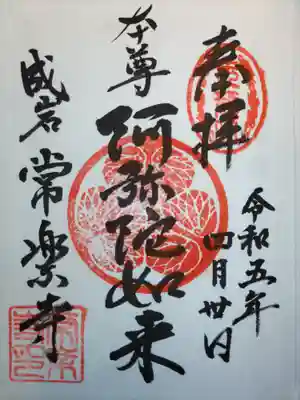 奉拝
令和五年
四月卅日
本尊
阿弥陀如来
成岩
常楽寺